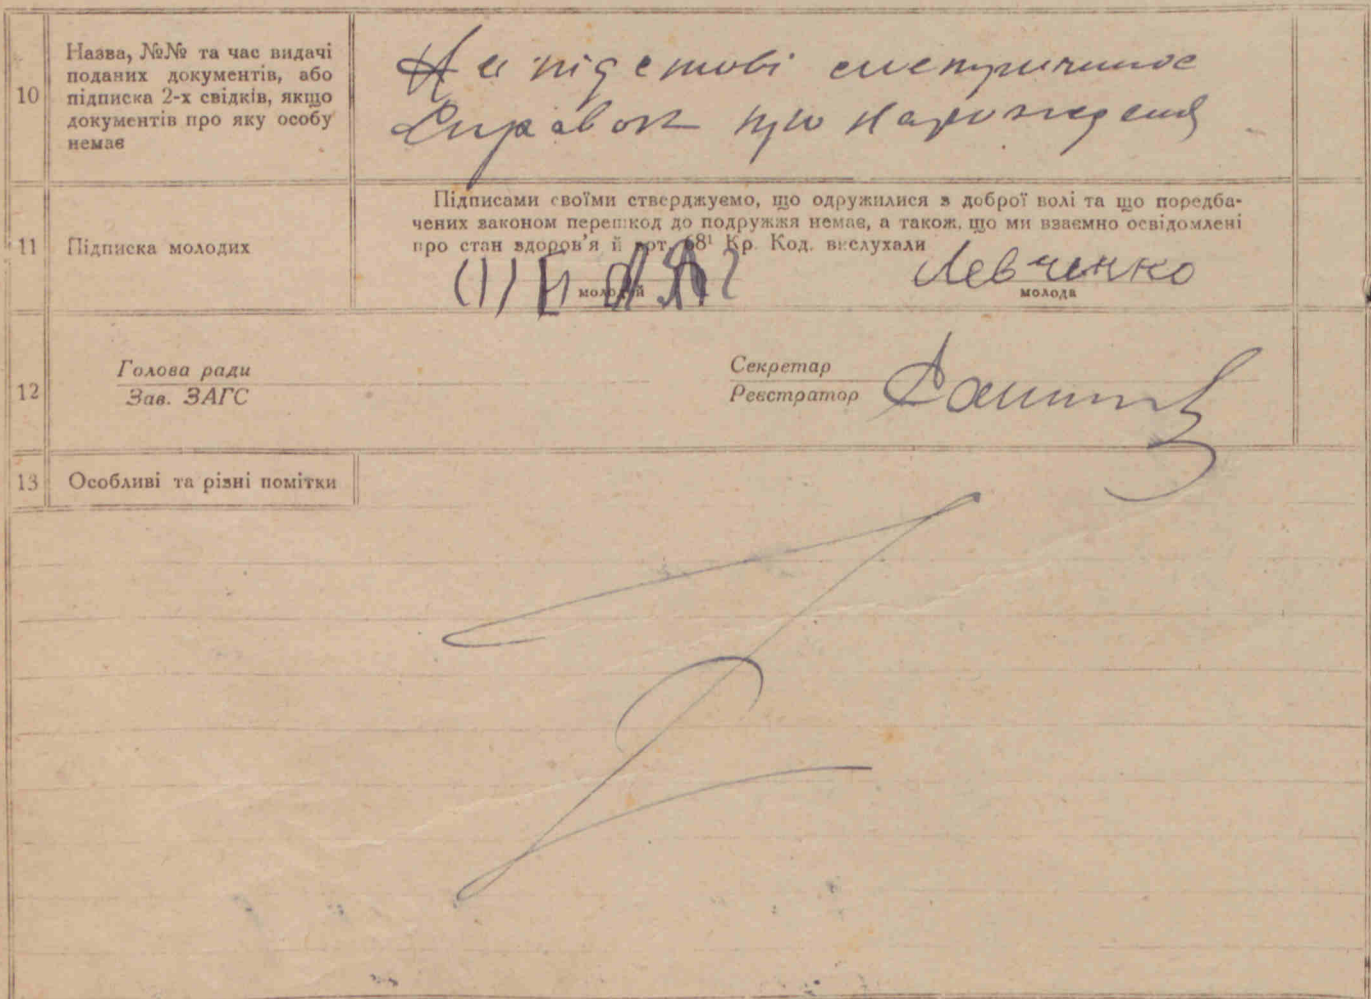 10
Назва, №№ та час видачі
поданих документів, або
підписка 2-х свідків, якщо
документів про яку особу
немає
На підстові
Справок про нарождения
11
Підписка молодих
Підписами своїми стверджуємо, що одружилися з доброї волі та що поредба-
чених законом перешкод до подружжя немає, а також, що ми взаємно освідомлені
про стан здоров'я й арт. 68¹ Кр. Код. вислухали
молодий
Левченко
молода
12
Голова ради
Зав. ЗАГС
Секретар
Реєстратор
13
Особливі та різні помітки